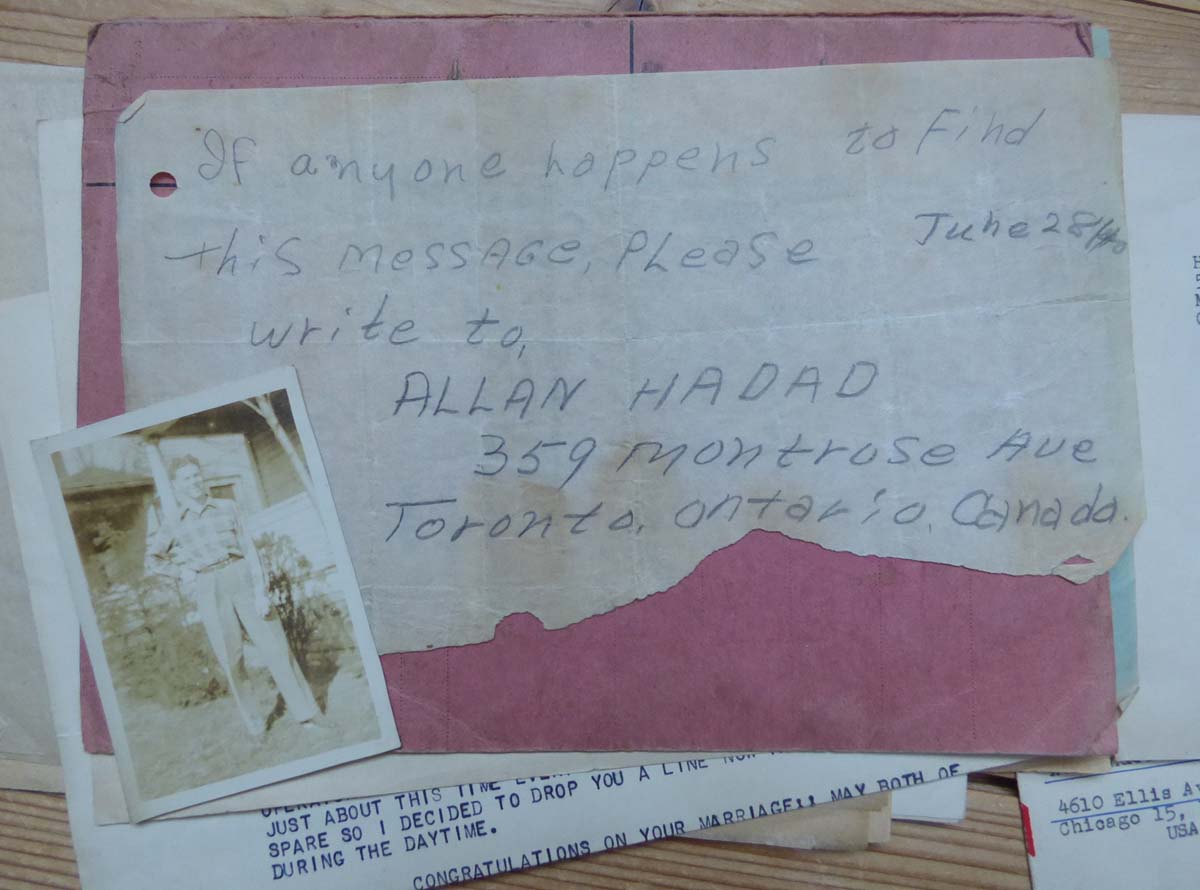 If anyone happens to Find
this MESSAGE, PLease
June 28/40
write to,
ALLAN HADAD
359 montrose Ave
Toronto, ontario, Canada.
JUST ABOUT THIS TIME
SPARE SO I DECIDED TO DROP YOU A LINE
DURING THE DAYTIME.
CONGRATULATIONS ON YOUR MARRIAGE,, MAY BOTH OF
4610 Ellis
Chicago 15,
USA